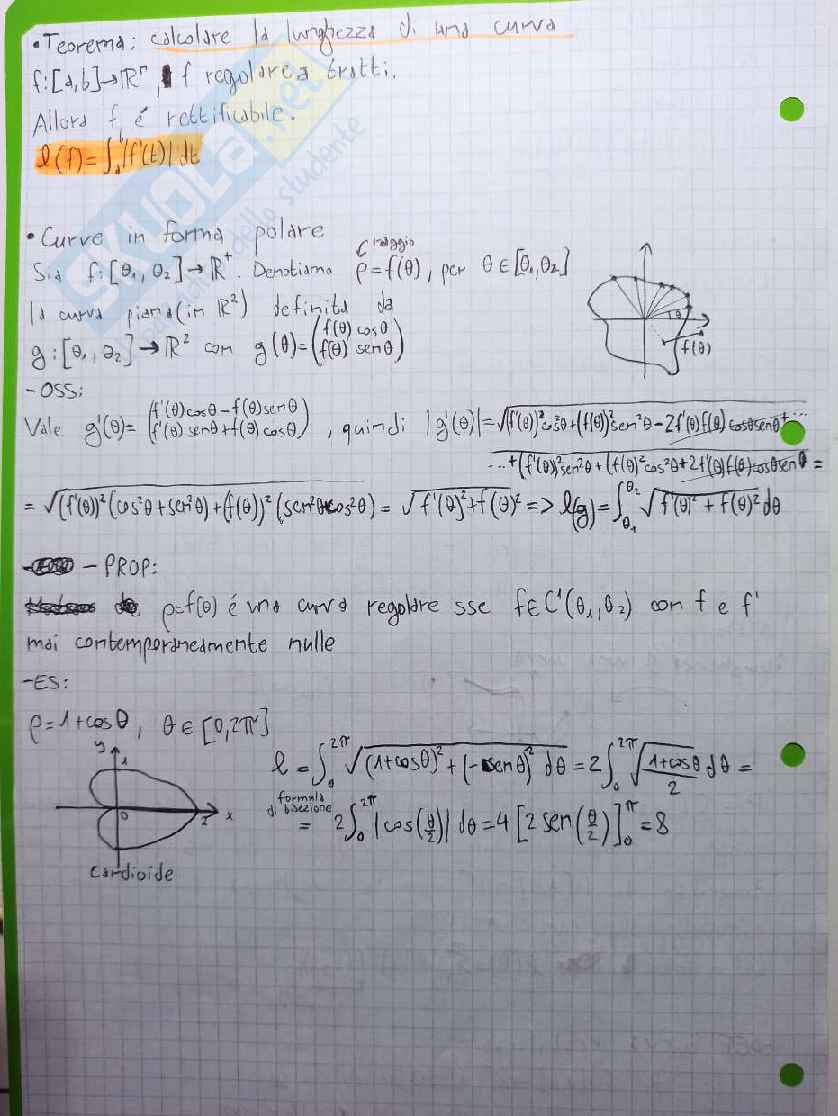 • Teorema: calcolare la lunghezza di una curva
f:[a,b]→ℝⁿ, f regolare a tratti.
Allora f è rettificabile.
l(f)=∫ₐᵇ|f'(t)|dt
• Curve in forma polare
Sia f:[θ₁,θ₂]→ℝ⁺. Denotiamo ρ=f(θ), per θ∈[θ₁,θ₂]
raggio
la curva piana (in ℝ²) definita da
g:[θ₁,θ₂]→ℝ² con g(θ)=(f(θ) cosθ
f(θ) senθ)
θ
f(θ)
- OSS:
Vale g'(θ)=(f'(θ)cosθ-f(θ)senθ
f'(θ)senθ+f(θ)cosθ), quindi |g'(θ)|=√(f'(θ))²cos²θ+(f(θ))²sen²θ-2f'(θ)f(θ)cosθsenθ+...
...+(f'(θ))²sen²θ+(f(θ))²cos²θ+2f'(θ)f(θ)cosθsenθ =
=√(f'(θ))²(cos²θ+sen²θ)+(f(θ))²(sen²θ+cos²θ) = √f'(θ)²+f(θ)² => l(g)=∫θ₁^θ₂ √f'(θ)²+f(θ)² dθ
- PROP:
ρ=f(θ) é una curva regolare sse f∈C¹(θ₁,θ₂) con f e f'
mai contemporaneamente nulle
-ES:
ρ=1+cosθ, θ∈[0,2π]
y
1
0
2
x
Cardioide
l=∫₀^2π √(1+cosθ)²+(-senθ)² dθ=2∫₀^2π √(1+cosθ)/2 dθ =
formula
di bisezione
= 2∫₀^2π |cos(θ/2)| dθ=4[2 sen(θ/2)]₀^π=8
SKUOLA.net
dello studente